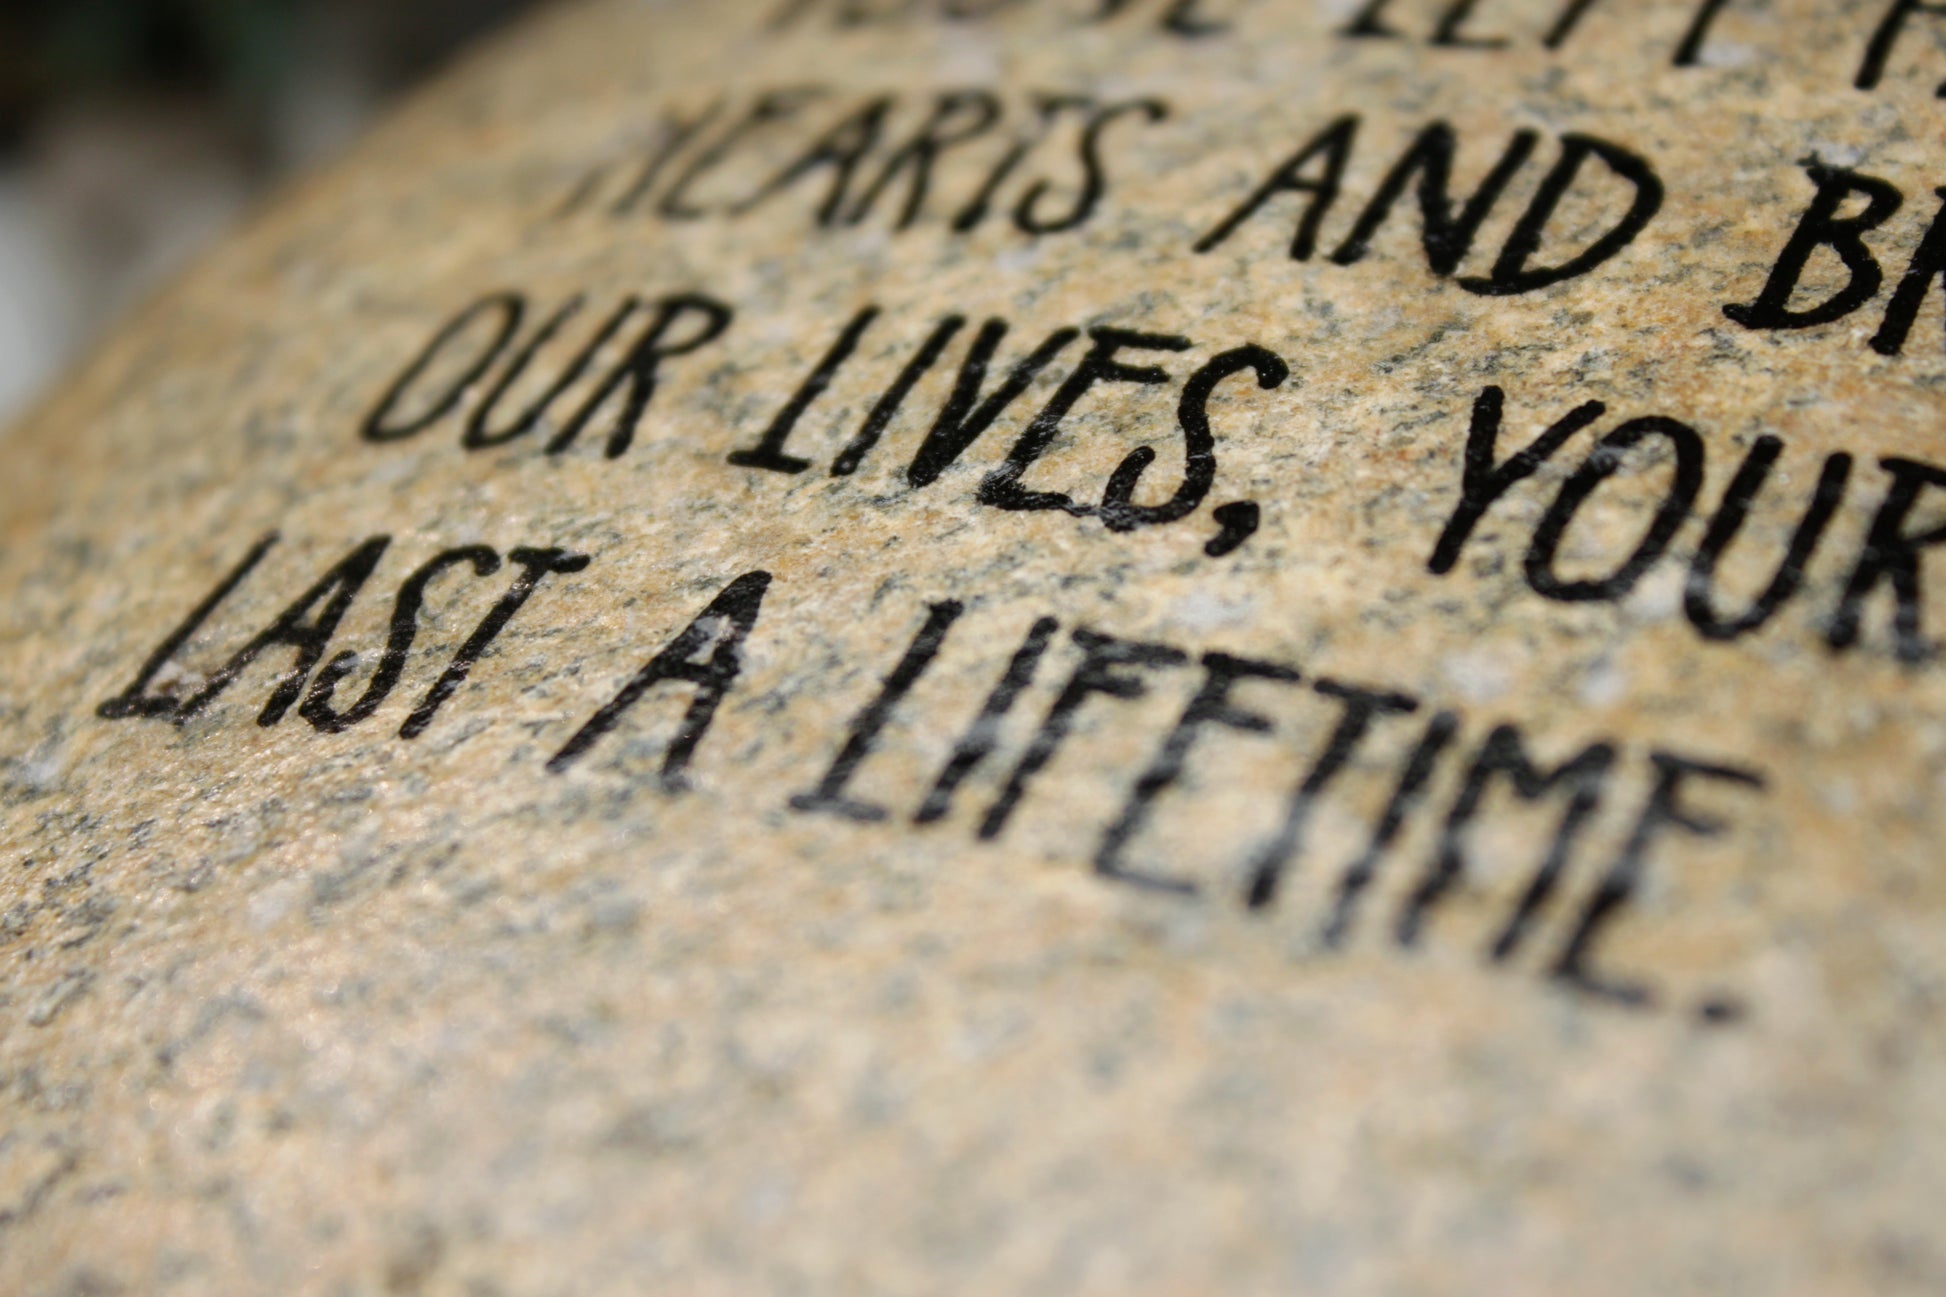 LEFT
HEARTS AND
OUR LIVES, YOUR
LAST A LIFETIME.